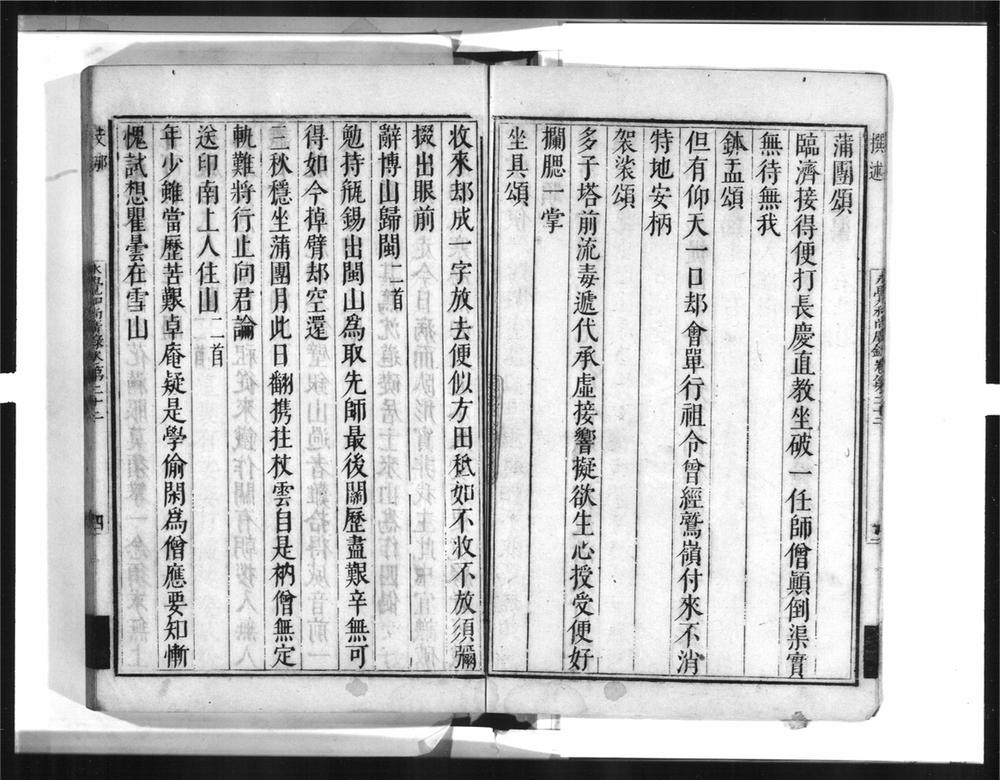 撰述
蒲團頌
臨濟接得便打長慶直教坐破一任師僧顚倒渠實
無待無我
鉢盂頌
但有仰天口却會單行祖令曾經鷲嶺付來不消
特地安柄
袈裟頌
多子塔前流毒遞代承虛接響擬欲生心授受便好
攔腮一掌
坐具頌
收來却成一字放去便似方田秪如不收不放須彌
掇出眼前
辭博山歸閩二首
勉持瓶錫出閩山爲取先師最後關歷盡艱辛無可
得如今掉臂却空還
三秋穩坐蒲團月此日翻攜拄杖雲自是衲僧無定
軌難將行止向君論
送印南上人住山二首
年少雖當歷苦艱卓庵疑是學偷閑爲僧應要知慚
愧試想瞿曇在雪山
四